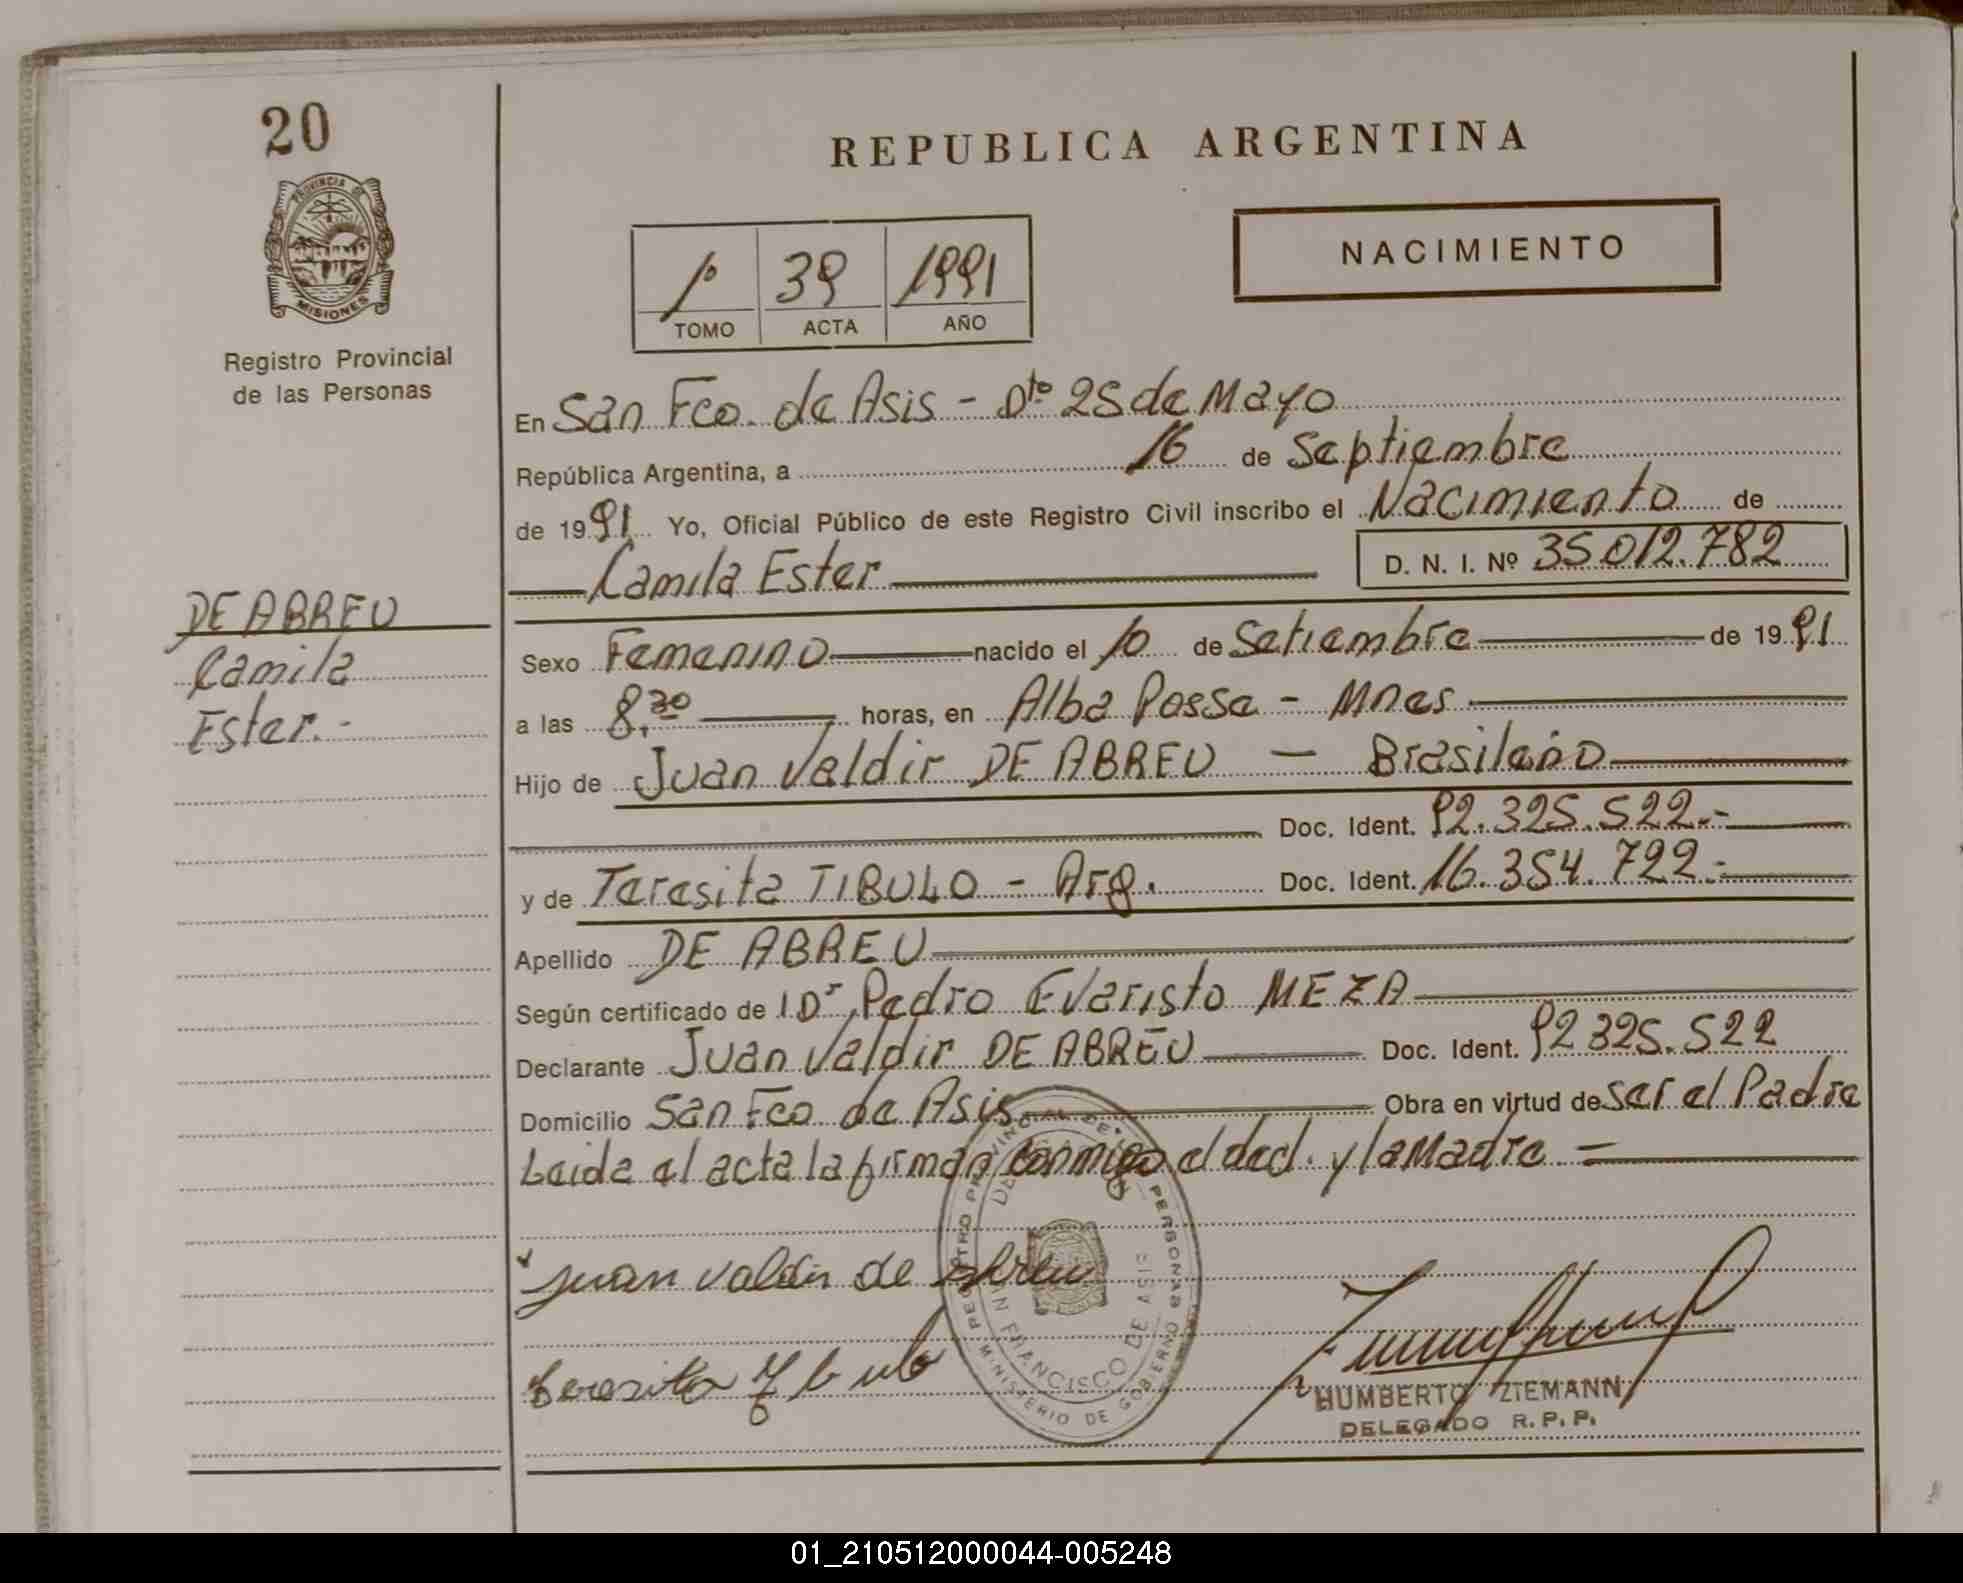 20
PROVINCIA DE
MISIONES
Registro Provincial
de las Personas
REPUBLICA ARGENTINA
NACIMIENTO
1º 39 1991
TOMO ACTA AÑO
En San Fco. de Asis - Dto 25 de Mayo
República Argentina, a 16 de Septiembre
de 1991 Yo, Oficial Público de este Registro Civil inscribo el Nacimiento de
Camila Ester D. N. I. Nº 35.012.782
DE ABREU
Camila
Ester.-
Sexo Femenino nacido el 10 de Setiembre de 1991
a las 8,30 horas, en Alba Posse - Mnes
Hijo de Juan Valdir DE ABREU - Brasileño
Doc. Ident. 92.325.522.-
y de Teresita TIBULO - Arg. Doc. Ident. 16.354.722.-
Apellido DE ABREU
Según certificado de Dr Pedro Evaristo MEZA
Declarante Juan Valdir DE ABREU Doc. Ident. 92 325.522
Domicilio San Fco de Asis Obra en virtud de ser el Padre
Leida el acta la firman conmigo el decl. y la Madre -
Juan valdir de Abreu
teresita Tibulo
REGISTRO PROVINCIAL DE PERSONAS
SAN FRANCISCO DE ASIS
MINISTERIO DE GOBIERNO
HUMBERTO ZIEMANN
DELEGADO R.P.P.
01_210512000044-005248